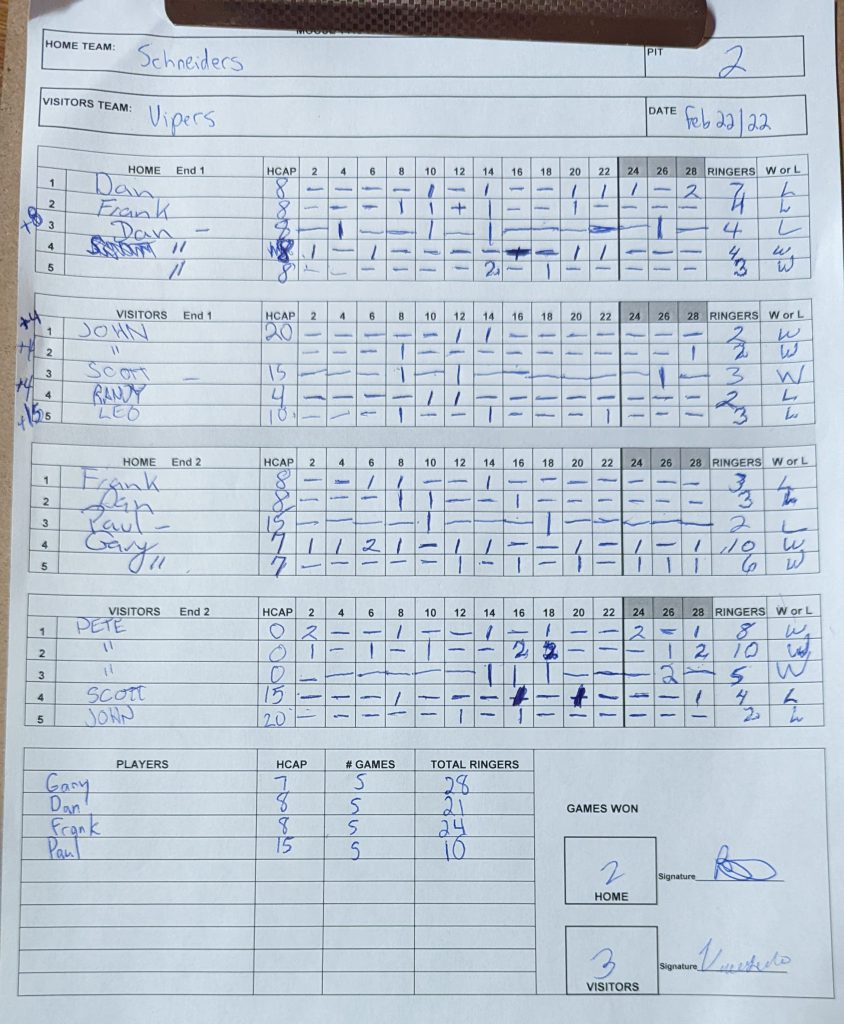 HOME TEAM: Schneiders PIT 2
VISITORS TEAM: Vipers DATE Feb 22/22
HOME End 1 HCAP 2 4 6 8 10 12 14 16 18 20 22 24 26 28 RINGERS W or L
1 Dan 8 – – – – 1 – 1 – – 1 1 1 – 2 7 L
2 Frank 8 – – – 1 1 + 1 – – 1 – – – – 4 L
+8 3 Dan – 8 – 1 – – 1 – 1 – – – – – 1 – 4 L
4 " 8 1 – 1 – – – – – – 1 1 – – – 4 W
5 " 8 – – – – – – 2 – 1 – – – – – 3 W
VISITORS End 1 HCAP 2 4 6 8 10 12 14 16 18 20 22 24 26 28 RINGERS W or L
+4 1 JOHN 20 – – – – – 1 1 – – – – – – – 2 W
+4 2 " – – – 1 – – – – – – – – – 1 2 W
3 SCOTT – 15 – – – 1 – 1 – – – – – – 1 – 3 W
+4 4 RANDY 4 – – – – 1 1 – – – – – – – – 2 L
+15 5 LEO 10 – – – 1 – – – 1 – – 1 – – – 3 L
HOME End 2 HCAP 2 4 6 8 10 12 14 16 18 20 22 24 26 28 RINGERS W or L
1 Frank 8 – – 1 1 – – 1 – – – – – – – 3 L
2 Dan 8 – – – 1 1 – – 1 – – – – – – 3 L
3 Paul – 15 – – – – 1 – – – 1 – – – – – 2 L
4 Gary 7 1 1 2 1 – 1 1 – – 1 – 1 – 1 10 W
5 " 7 – – – – – 1 – 1 – 1 – 1 1 1 6 W
VISITORS End 2 HCAP 2 4 6 8 10 12 14 16 18 20 22 24 26 28 RINGERS W or L
1 PETE 0 2 – – 1 – – 1 – 1 – – 2 – 1 8 W
2 " 0 1 – 1 – 1 – – 2 2 – – – 1 2 10 W
3 " 0 – – – – – – 1 1 1 – – – 2 – 5 W
4 SCOTT 15 – – – 1 – – – – – – – 1 4 L
5 JOHN 20 – – – – – 1 – 1 – – – – – – 2 L
PLAYERS HCAP # GAMES TOTAL RINGERS
Gary 7 5 28
Dan 8 5 21
Frank 8 5 24
Paul 15 5 10
GAMES WON
2 HOME Signature
3 VISITORS Signature